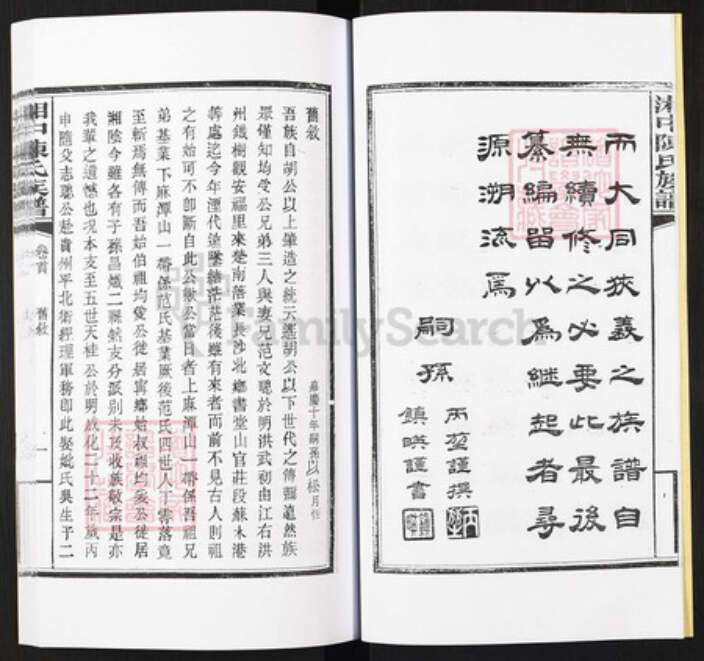 湘中陳氏族譜
而大同狹義之族譜自
無續修之必要此最後
纂編留以為継起者尋
源溯流焉
嗣孫
丙堃謹撰
鎮暎謹書
舊敘
嘉慶十年嗣孫以松月性
吾族自胡公以上肇造之統云遙胡公以下世代之傳緬邈然族
眾僅知均受公兄弟三人與妻兄范文聰於明洪武初由江右洪
州鐵樹觀安福里來楚南落業長沙北鄉書堂山官莊段蘇木港
等處迄今年湮代遠墜緒茫茫後雖有來者而前不見古人則祖
之有始可不即斷自此公歟公當日者上麻潭山一帶係吾祖兄
弟基業下麻潭山一帶係范氏基業厥後范氏四世人丁零落竟
至斬焉無傳而吾始伯祖均愛公徙居寧鄉始叔祖均
公徙居
湘陰今雖各有子孫昌熾二縣然支分派別未及收族敬宗是亦
我輩之遺憾也現本支至五世天桂公於明成化二十二年歲丙
申隨父志聰公赴貴州平北衛經理軍務即此娶媲氏吳生子二
湘中陳氏族譜
卷首
舊敘
一
FamilySearch